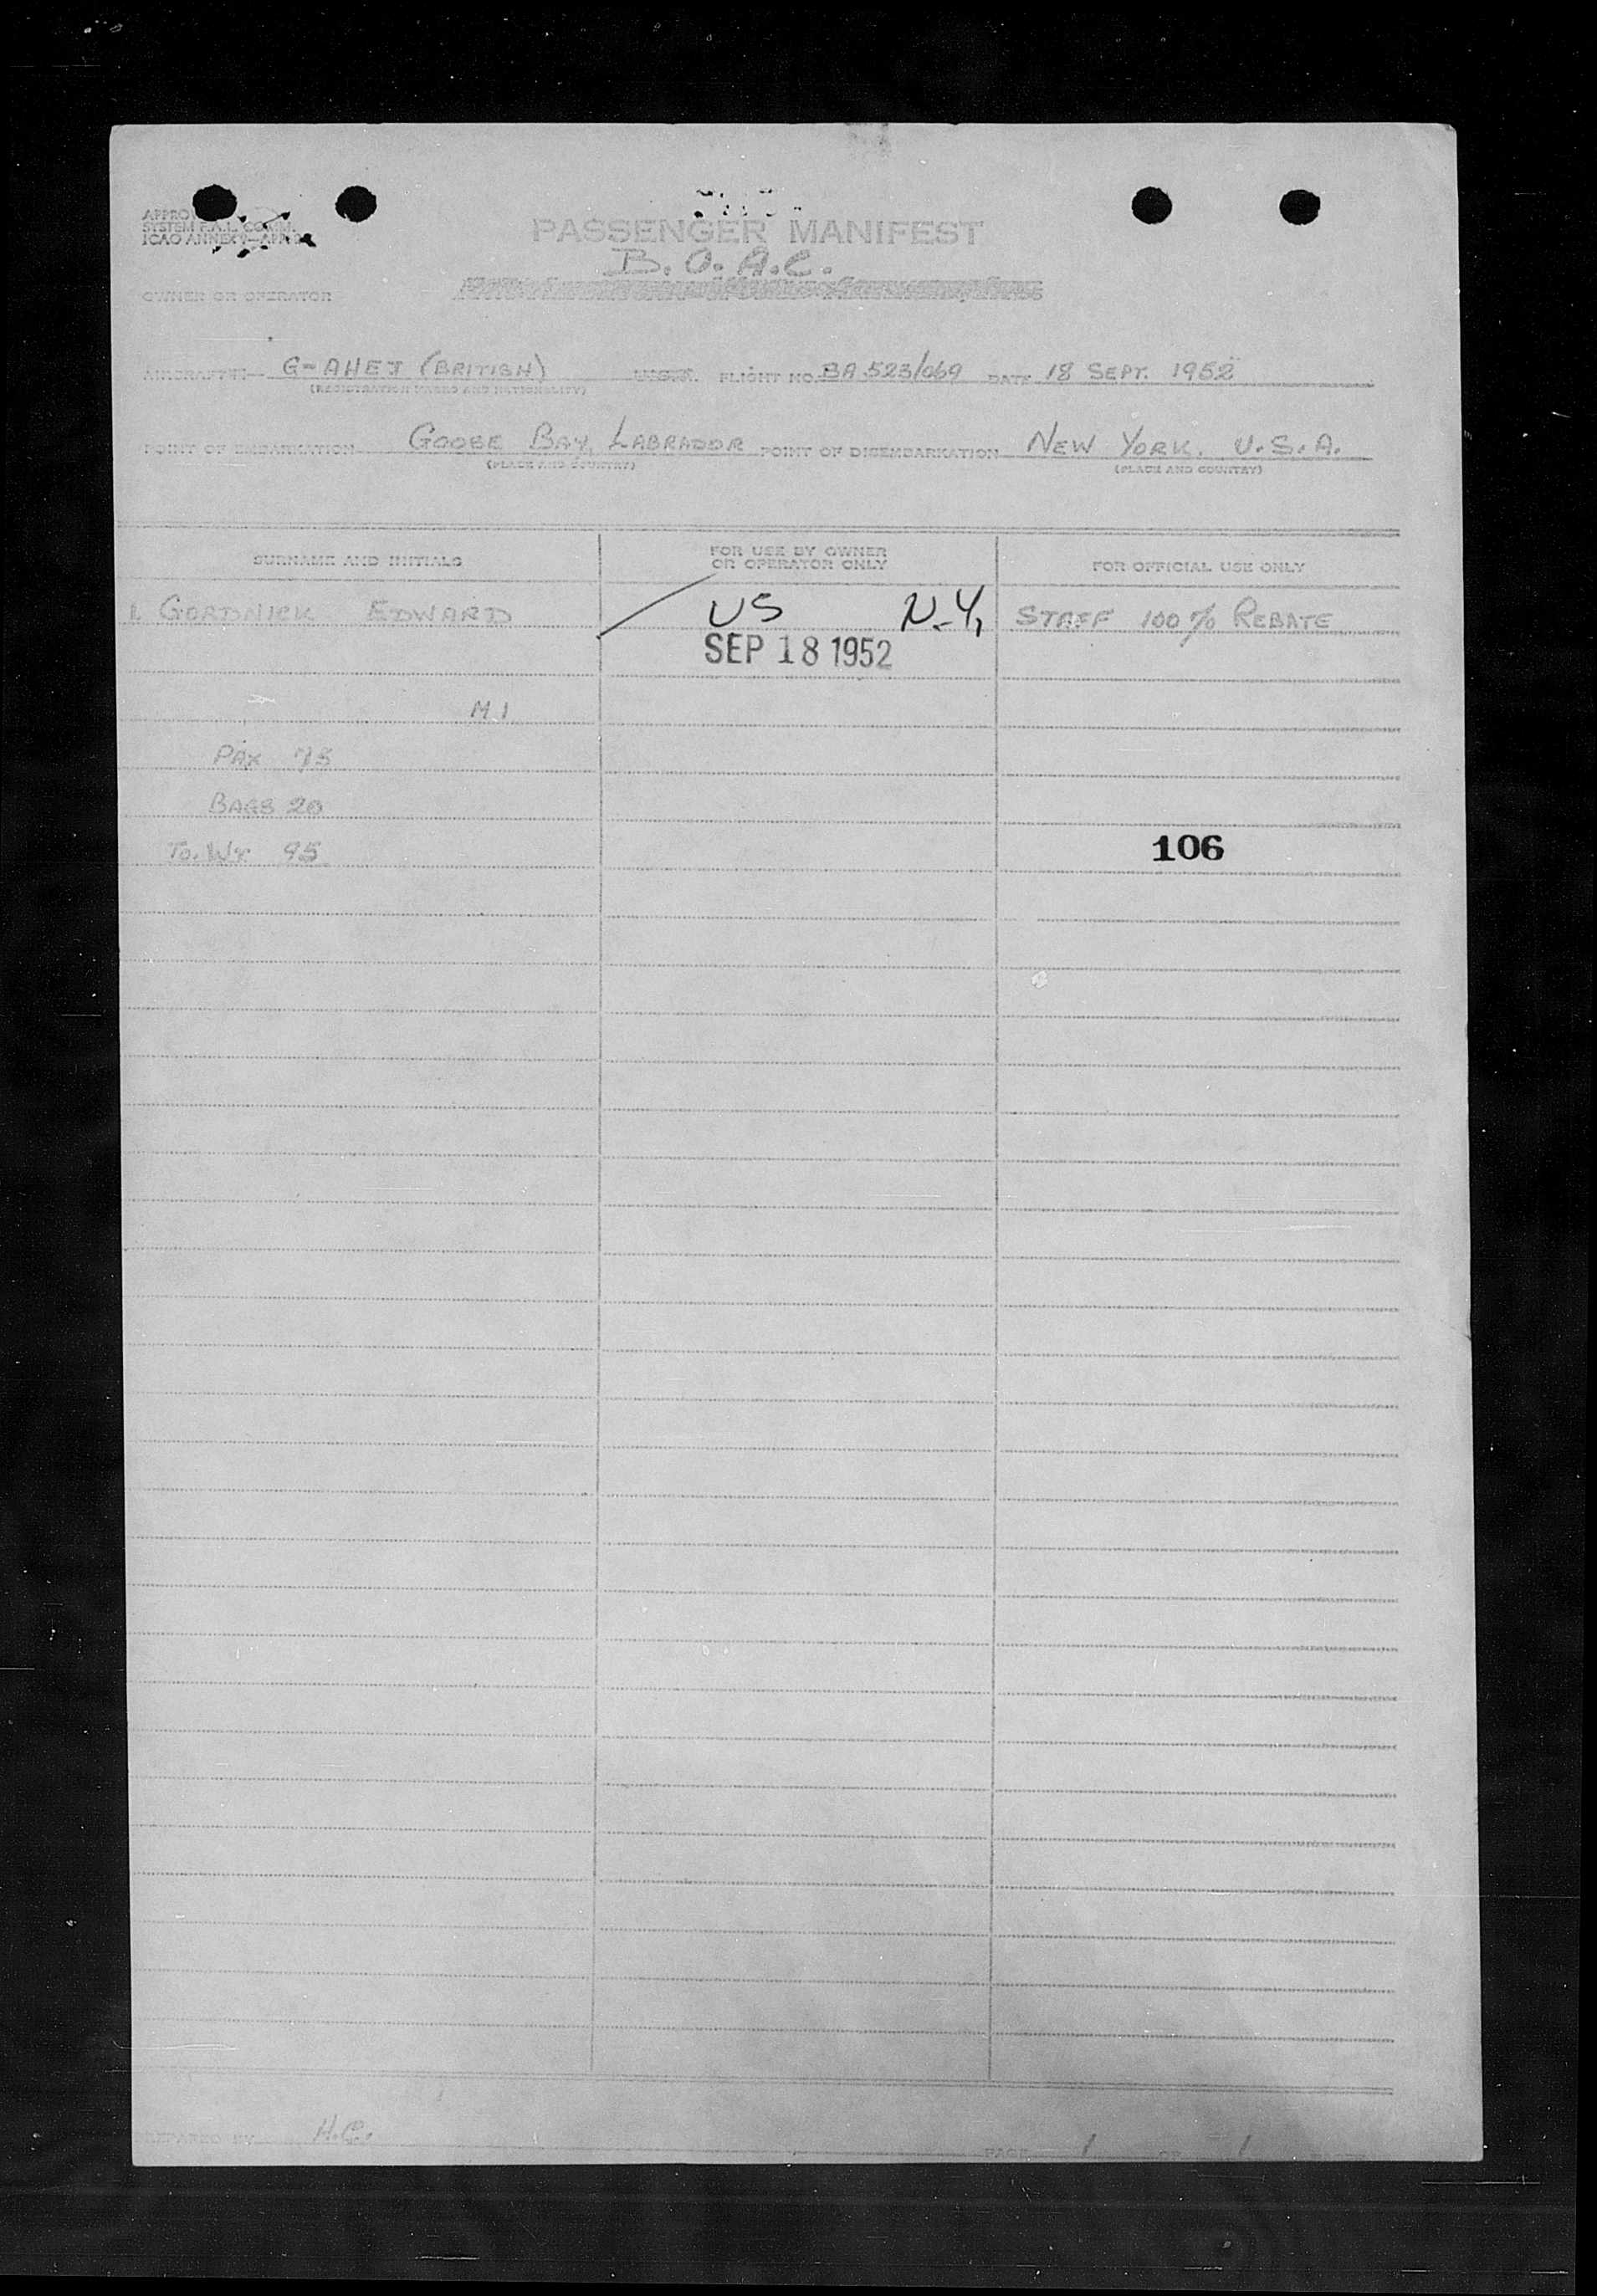 PASSENGER MANIFEST
SYSTEM F.A.L. COMM.
B.O.A.C.
OWNER OR OPERATOR
G-AHEJ (BRITISH) FLIGHT NO. BA 523/069 DATE 18 SEPT. 1952
(REGISTRATION MARKS AND NATIONALITY)
POINT OF EMBARKATION GOOSE BAY, LABRADOR POINT OF DISEMBARKATION NEW YORK. U.S.A.
(PLACE AND COUNTRY) (PLACE AND COUNTRY)
SURNAME AND INITIALS FOR USE BY OWNER OR OPERATOR ONLY FOR OFFICIAL USE ONLY
1. GORDNICK EDWARD US N.Y. STAFF 100% REBATE
SEP 18 1952
M.1
PAX 75
BAGS 20
To. Wt 95 106
PREPARED BY H.C. PAGE 1 OF 1